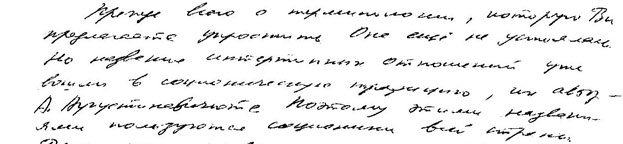 Прежде всего о терминологии, которую Вы
предлагаете упростить Она ещё не устоялась.
Но названия интертипных отношений уже
вошли в соционическую традицию, их автор –
А. Аугустинавичюте Поэтому этими названи-
ями пользуются соционики всей страны.